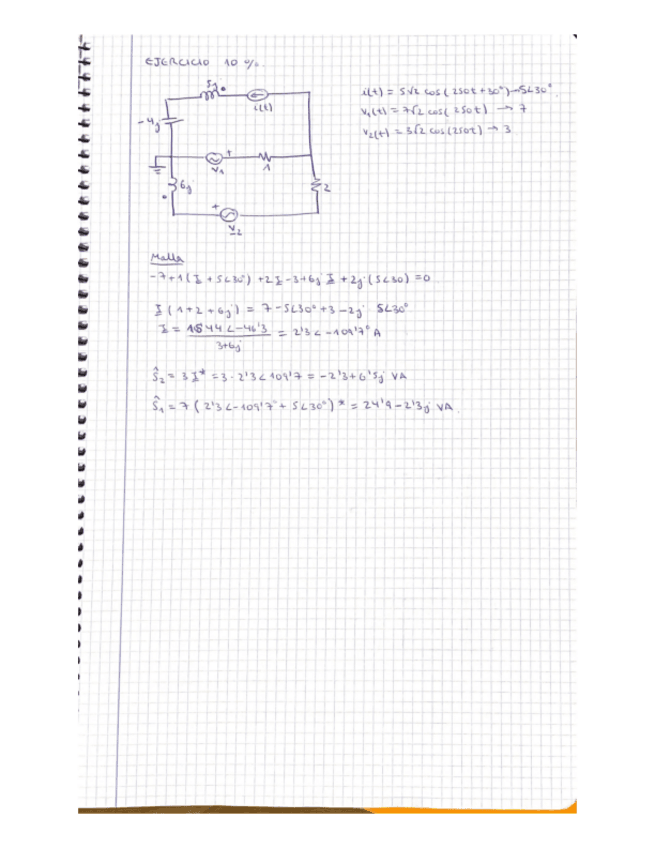 EJERCICIO 10 %.
5j
i(t)
-4j
+
V1
1
6j
2
+
V2
i(t) = 5√2 cos(250t+30°)→5∠30°
V1(t) = 7√2 cos(250t) → 7
V2(t) = 3√2 cos(250t) → 3
Malla
-7+1(I + 5∠30°) +2I -3+6j I + 2j (5∠30) = 0
I (1+2+6j) = 7-5∠30°+3-2j 5∠30°
I = 15'44∠-46'3 / 3+6j = 2'3∠-109'7° A
Ŝ2 = 3I* = 3·2'3∠109'7 = -2'3+6'5j VA
Ŝ1 = 7(2'3∠-109'7° + 5∠30°)* = 24'9-2'3j VA.